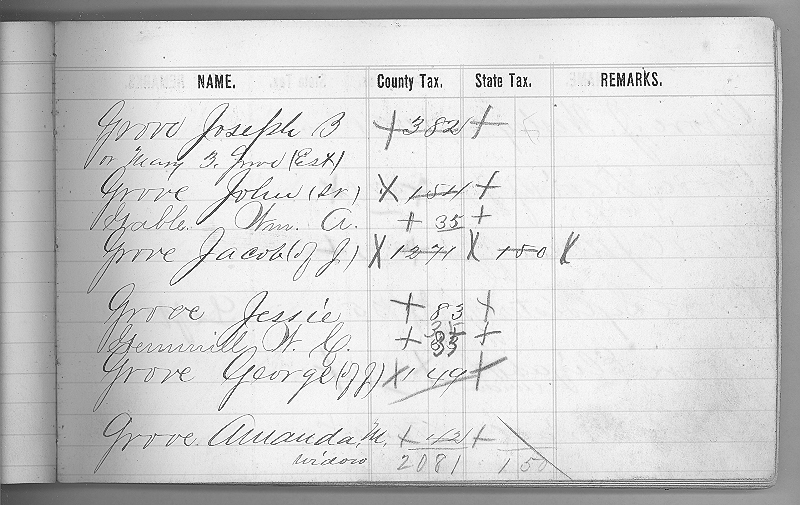 NAME. County Tax. State Tax. REMARKS.
Grove Joseph B + 382 +
or Mary B. Grove (Est)
Grove John (Sr) X 154 +
Gable Wm. A. + 35 +
Grove Jacob (of J) X 1271 X 150 X
Grove Jessie + 83 +
W. C. + 33 +
Grove George (of J) X 1 49 +
Grove Amanda M. + 42 +
widow 2081 150